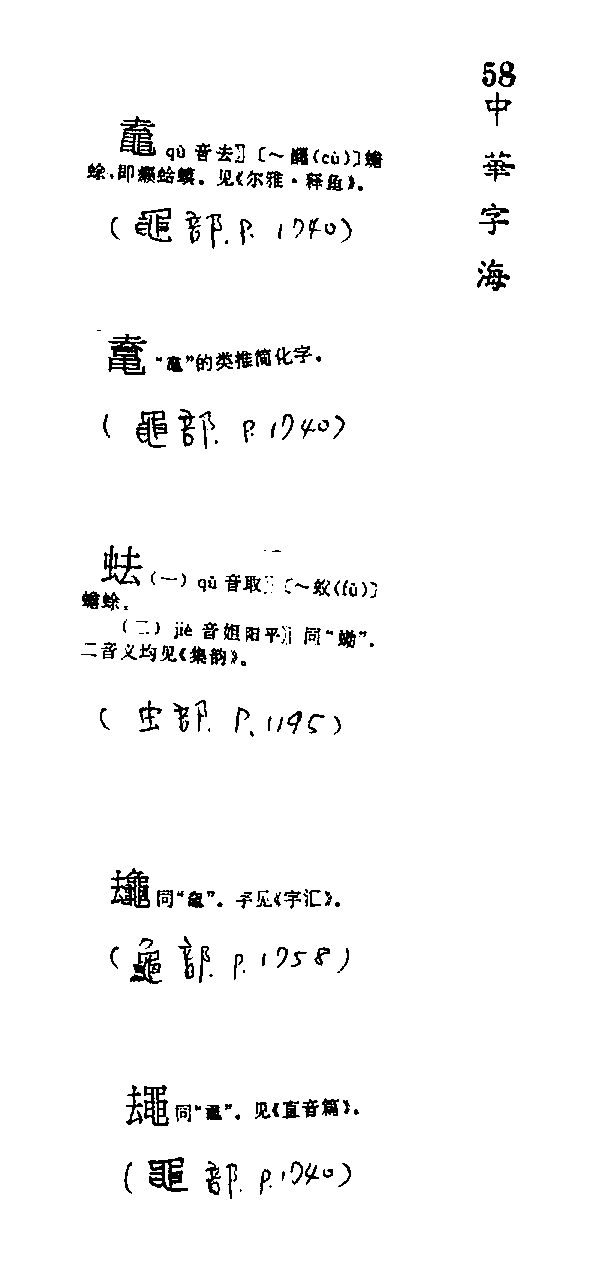 58
中華字海
qù 音去〗〔～(cù)〕蟾
蜍,即癞蛤蟆。见《尔雅·释鱼》。
(黽部. P. 1740)
“”的类推简化字。
(黽部. P. 1740)
(一) qǔ 音取〗〔～蚥(fǔ)〕
蟾蜍。
(二) jié 音姐阳平〗同“蜐”。
二音义均见《集韵》。
(虫部. P. 1195)
同“”。字见《字汇》。
(龜部. P. 1758)
同“”。见《直音篇》。
(黽部. P. 1740)